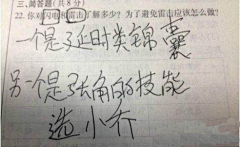 三、简答题(共8分)
22. 你对闪电和雷击了解多少?为了避免雷击应该怎么做?
一个是孙延时类锦囊
另一个是张角的技能
选小乔